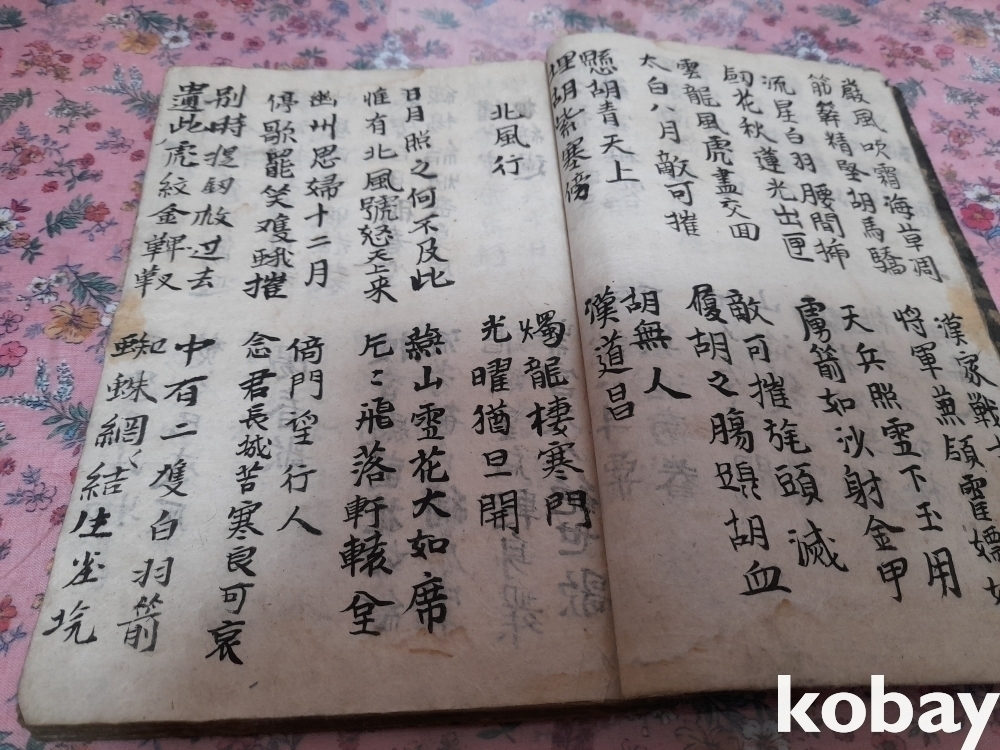 嚴風吹霜海草凋
筋簳精堅胡馬驕
漢家戰
將軍兼領霍嫖
流星白羽腰間揷
劒花秋蓮光出匣
天兵照雪下玉用
虜箭如沙射金甲
雲龍風虎盡交回
太白八月敵可摧
敵可摧旄頭滅
履胡之膓 胡血
懸胡青天上
埋胡紫塞傍
胡無人
漢道昌
北風行
燭龍棲寒門
光曜猶旦開
日月照之何不及此
惟有北風號怒天上来
燕山雪花大如席
片〻飛落軒轅全
幽州思婦十二月
停歌罷笑雙蛾摧
倚門望行人
念君長城苦寒良可哀
別時提劒救过去
遺此虎紋金鞞靫
中有二隻白羽箭
蜘蛛網〻結生 埃
kobay